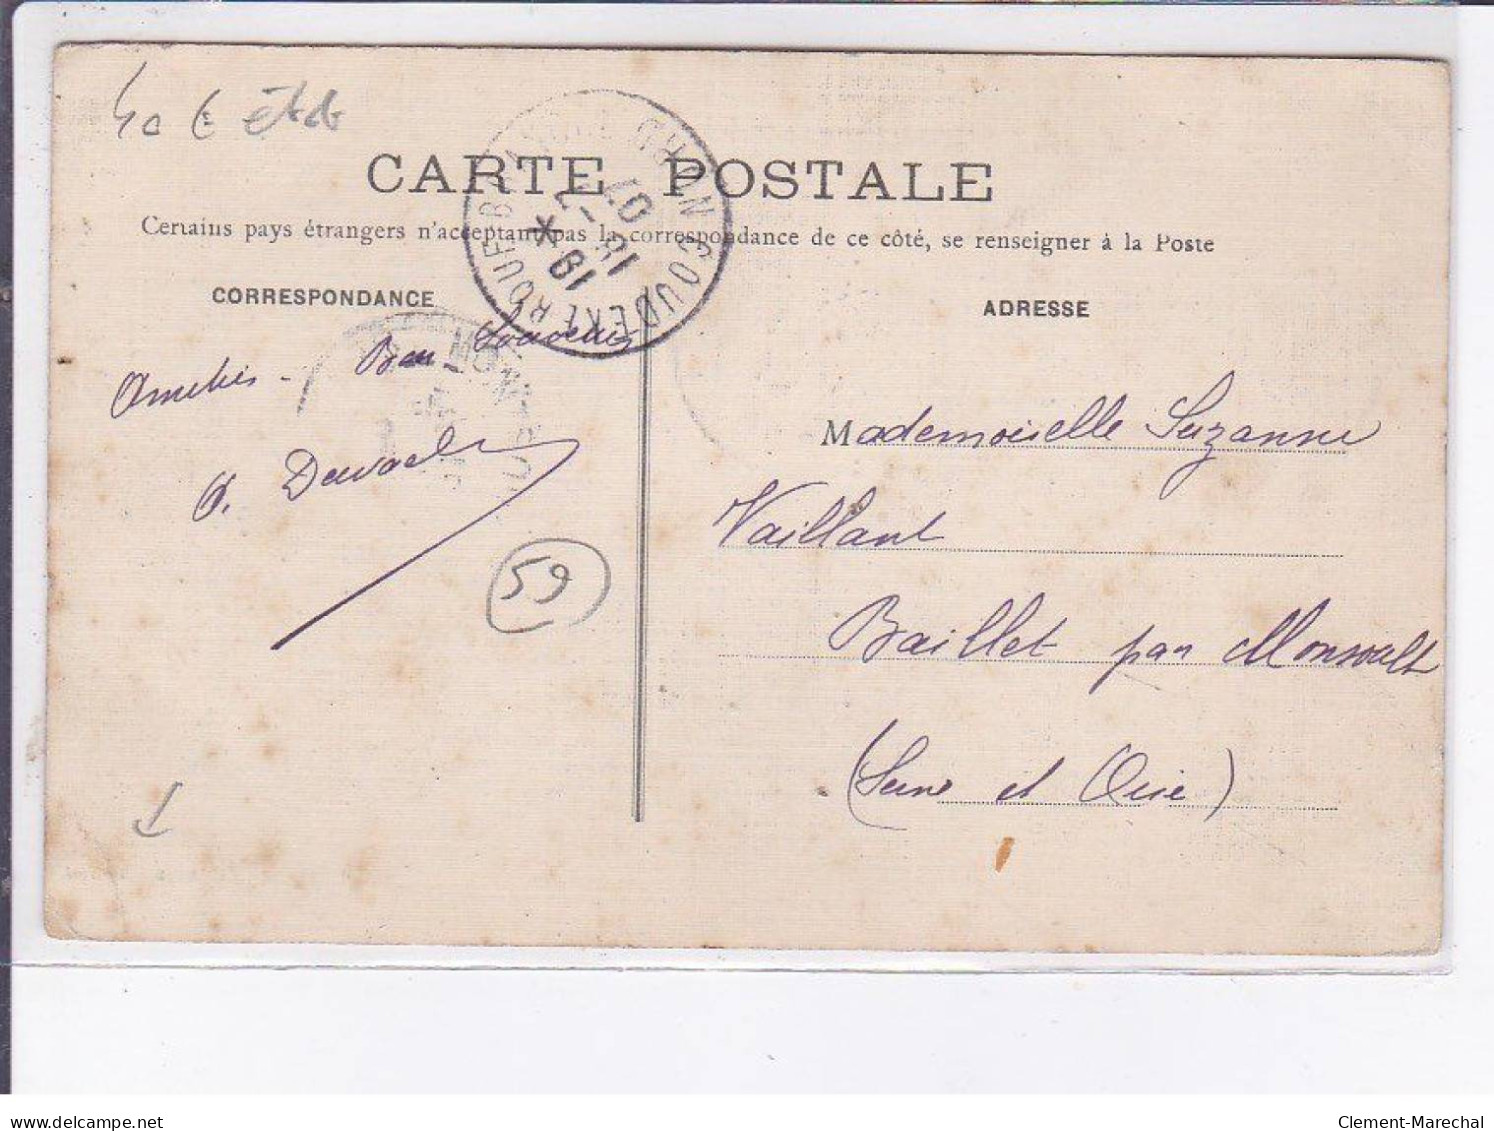 40 € état
CARTE POSTALE
Certains pays étrangers n'acceptant pas la correspondance de ce côté, se renseigner à la Poste
CORRESPONDANCE
ADRESSE
COUDEKERQUE-BRANCHE NORD
19 *
15 - 2
07
Amitiés - Bon Souvenir
59
Mademoiselle Suzanne
Vaillant
Baillet par Monsoult
(Seine et Oise)
delcampe.net
Clement-Marechal